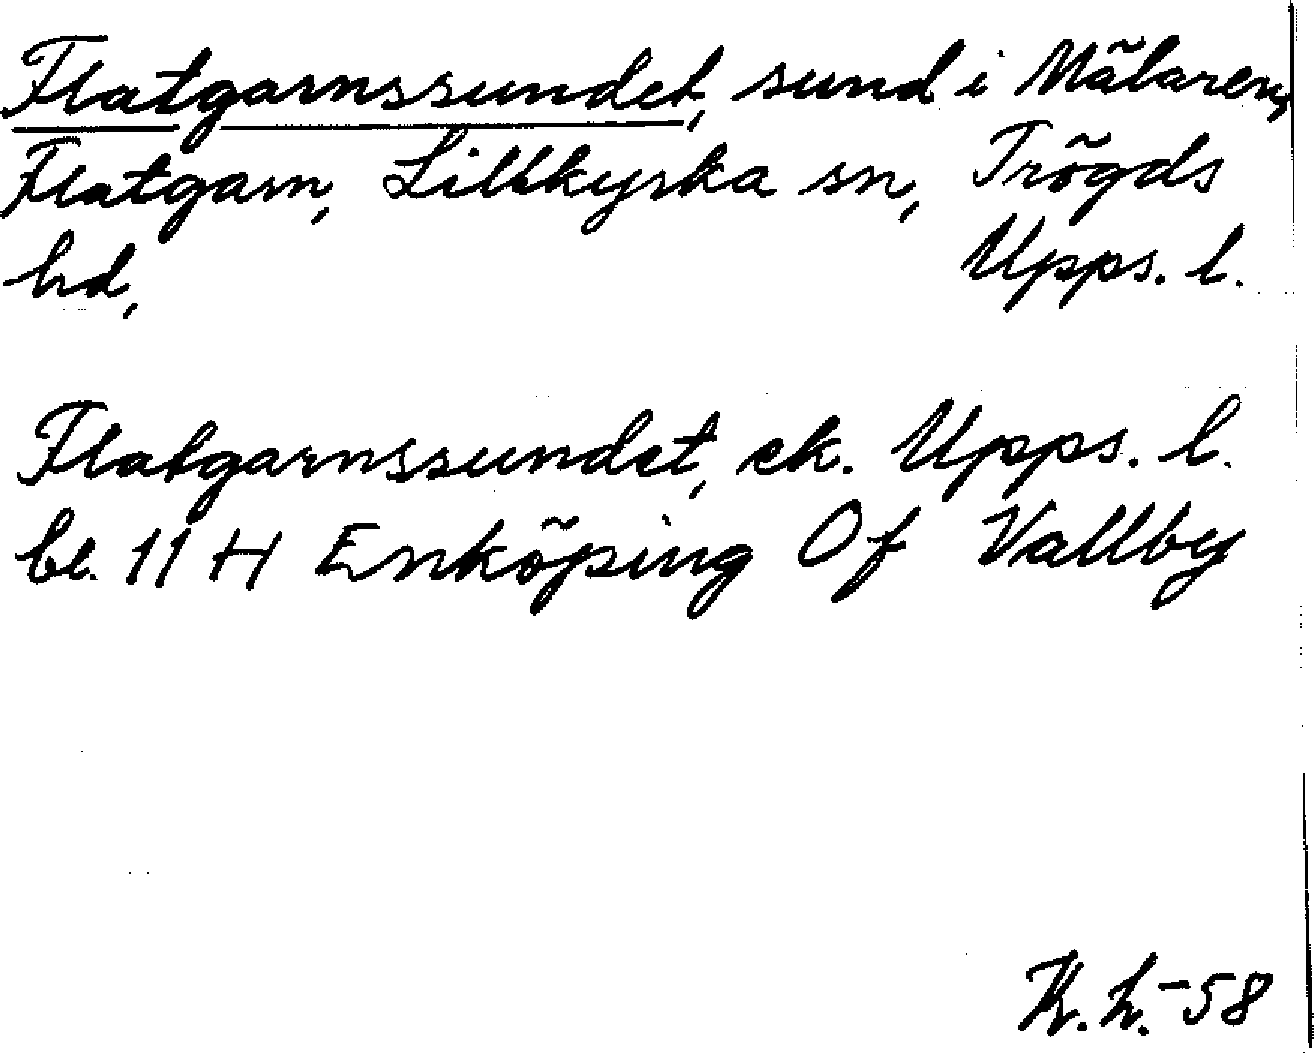 Flatgarnssundet, sund i Mälaren,
Flatgarn, Lillkyrka sn, Trögds
hd, Upps. l.
Flatgarnssundet, ek. Upps. l.
bl. 11 H Enköping Of Vallby
K.L.-58